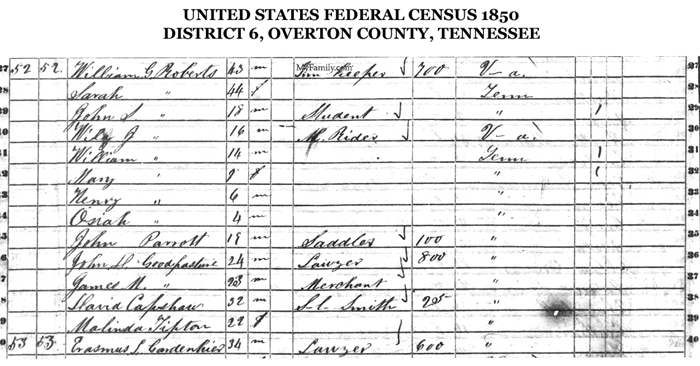 UNITED STATES FEDERAL CENSUS 1850
DISTRICT 6, OVERTON COUNTY, TENNESSEE
MyFamily.com
27 52 52 William G Roberts 43 m Inn Keeper 700 V-a.
28 Sarah " 44 f Tenn 28
29 John S " 18 m Student " 1 29
30 Wily J " 16 m — M. Rider V-a. 30
31 William " 14 m Tenn 1 31
32 Mary " 9 f " 1 32
33 Henry " 6 m "
34 Osiah " 4 m "
35 John Parrott 19 m Saddler 100 "
36 John D Goodpasture 24 m Lawyer 800 "
37 James M. " m Merchant "
38 David Capshaw 32 m S-l- Smith "
39 Malinda Tipton 22 f " 39
40 53 53 Erasmus L Gardenhier 34 m Lawyer 600 " 40